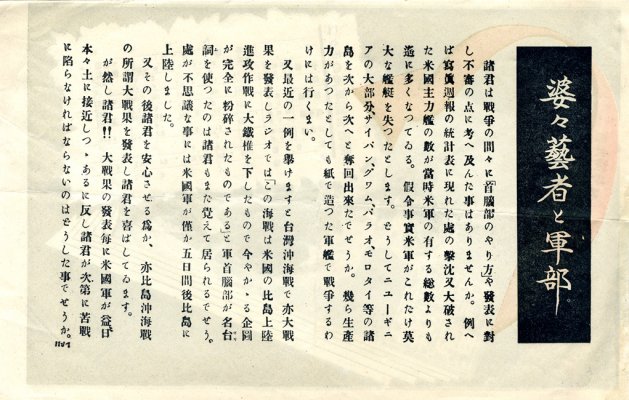 婆々藝者と軍部
諸君は戰爭の間々に首腦部のやり方や發表に對
し不審の点に考へ及んだ事はありませんか。例へ
ば寫眞週報の統計表に現れた處の擊沈又大破され
た米國主力艦の數が當時米軍の有する總數よりも
遙に多くなつてゐる。假令事實米軍がこれだけ莫
大な艦艇を失つたとします。どうしてニユーギニ
アの大部分、サイパン、グワム、パラオ、モロタイ等の諸
島を次から次へと奪回出來たでせうか。幾ら生産
力があつたとしても紙で造つた軍艦で戰爭するわ
けには行くまい。
又最近の一例を擧げますと台灣沖海戰で亦大戰
果を發表しラジオでは「この海戰は米國の比島上陸
進攻作戰に大鐵椎を下したもので今やかゝる企圖
が完全に粉碎されたものである」と軍首腦部が名台
詞を使つたのは諸君もまた覚えて居られるでせう。
處が不思議な事には米國軍が僅か五日間後比島に
上陸しました。
又その後諸君を安心させる爲か、亦比島沖海戰
の所謂大戰果を發表し諸君を喜ばしてゐます。
が然し諸君!!大戰果の發表每に米國軍が益々日
本々土に接近しつゝあるに反し諸君が次第に苦戰
に陷らなければならないのはどうした事でせうか。
1101